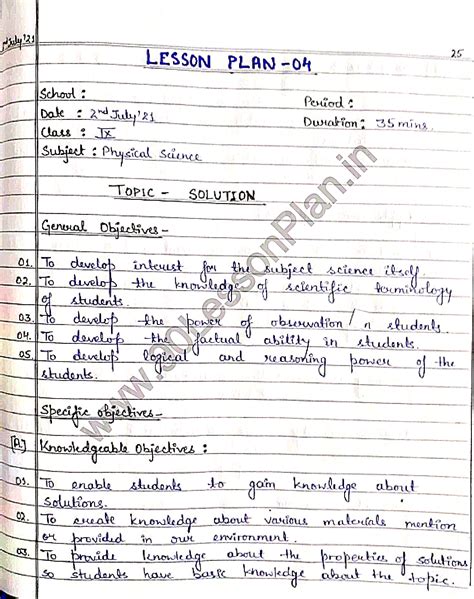 2nd July'21
25
LESSON PLAN-04
School :
Period :
Date : 2nd July'21
Duration : 35 mins.
Class : IX
Subject : Physical Science
TOPIC - SOLUTION
General Objectives-
01. To develop interest for the subject science itself.
02. To develop the knowledge of scientific terminology
of students.
03. To develop the power of observation in students.
04. To develop the factual ability in students.
05. To develop logical and reasoning power of the
students.
Specific objectives-
[A] Knowledgeable Objectives :
01. To enable students to gain knowledge about
solutions.
02. To create knowledge about various materials mention
or provided in our environment.
03. To provide knowledge about the properties of solutions
so students have basic knowledge about the topic.